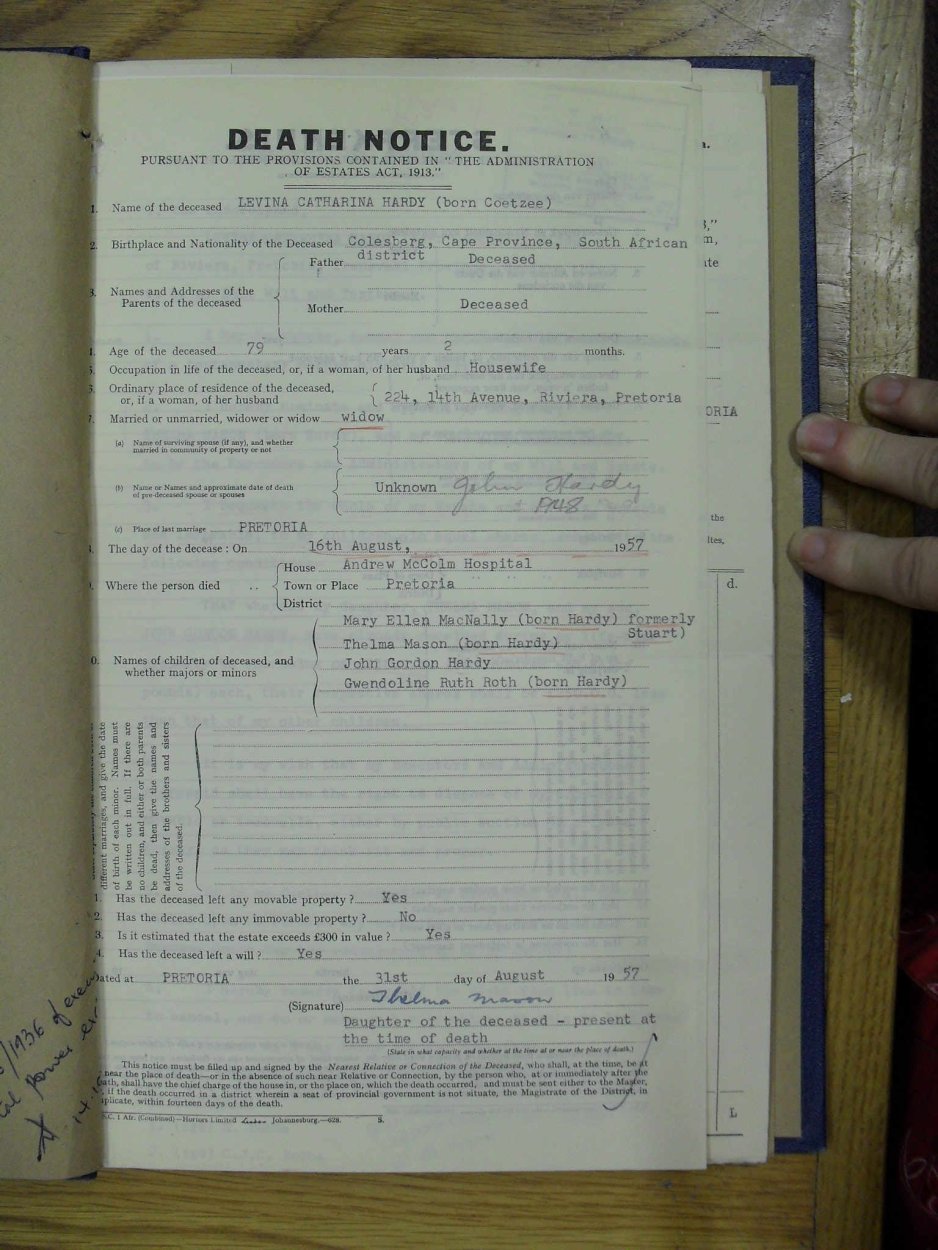 DEATH NOTICE.
PURSUANT TO THE PROVISIONS CONTAINED IN "THE ADMINISTRATION
OF ESTATES ACT, 1913."
1. Name of the deceased LEVINA CATHARINA HARDY (born Coetzee)
2. Birthplace and Nationality of the Deceased Colesberg, Cape Province, South African
district
Father Deceased
3. Names and Addresses of the
Parents of the deceased
Mother Deceased
Age of the deceased 79 years 2 months.
Occupation in life of the deceased, or, if a woman, of her husband Housewife
Ordinary place of residence of the deceased,
or, if a woman, of her husband 224, 14th Avenue, Riviera, Pretoria
7. Married or unmarried, widower or widow widow
(a) Name of surviving spouse (if any), and whether
married in community of property or not
(b) Name or Names and approximate date of death
of pre-deceased spouse or spouses
Unknown John Hardy
(c) Place of last marriage PRETORIA
The day of the decease : On 16th August, 1957
House Andrew McColm Hospital
Where the person died .. Town or Place Pretoria
District
Mary Ellen MacNally (born Hardy) formerly
Stuart)
Thelma Mason (born Hardy)
0. Names of children of deceased, and
whether majors or minors
John Gordon Hardy
Gwendoline Ruth Roth (born Hardy)
different marriages, and give the date
of birth of each minor. Names must
be written out in full. If there are
no children, and either or both parents
be dead, then give the names and
addresses of the brothers and sisters
of the deceased.
1. Has the deceased left any movable property ? Yes
2. Has the deceased left any immovable property ? No
3. Is it estimated that the estate exceeds £300 in value ? Yes
4. Has the deceased left a will ? Yes
Dated at PRETORIA the 31st day of August 1957
(Signature) Thelma Mason
Daughter of the deceased - present at
the time of death
(State in what capacity and whether at the time at or near the place of death.)
This notice must be filled up and signed by the Nearest Relative or Connection of the Deceased, who shall, at the time, be at
near the place of death—or in the absence of such near Relative or Connection, by the person who, at or immediately after the
death, shall have the chief charge of the house in, or the place on, which the death occurred, and must be sent either to the Master,
if the death occurred in a district wherein a seat of provincial government is not situate, the Magistrate of the District, in
within fourteen days of the death.
1 Afr. (Combined)—Hortors Limited Johannesburg.—628. S.
ORIA
the
d.
L
/1936
power